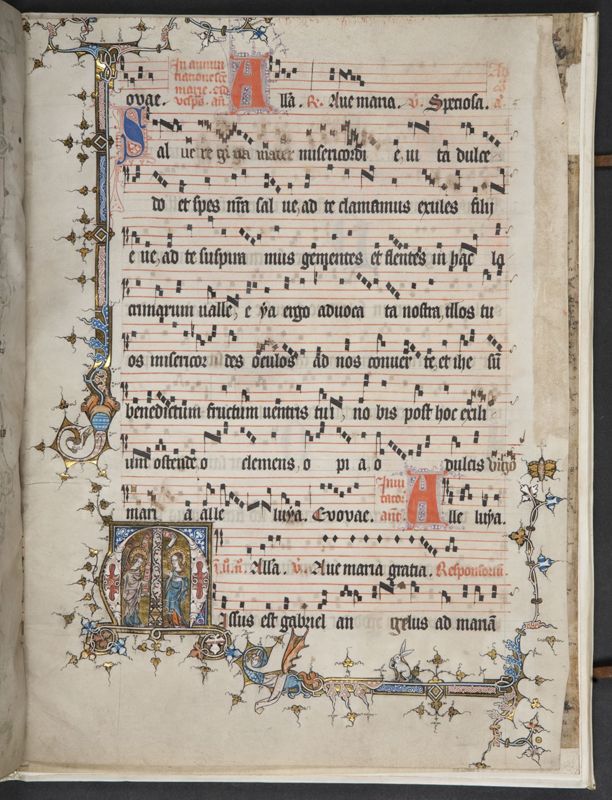 In annun
tatione sce
marie. ad
vesps. añ. Allã. R. Aue maria. V. Speciosa. a.
ovae.
Sal ue re gi na mater misericordi e ui ta dulce
do et spes nr̃a sal ue, ad te clamamus exules filij
e ue, ad te suspira mus gementes et flentes in hac la
crimarum ualle, e ya ergo aduoca ta nostra, illos tu
os misericor des oculos ad nos conuer te, et ihe sũ
benedictum fructum uentris tui, no bis post hoc exili
um ostende, o clemens, o pi a, o dulcis virgo
mari a alle luya. Evovae. Inui tator. Alle luya.
Allã. V. Aue maria gratia. Responsoriũ
Missus est gabriel an gelus ad mariã